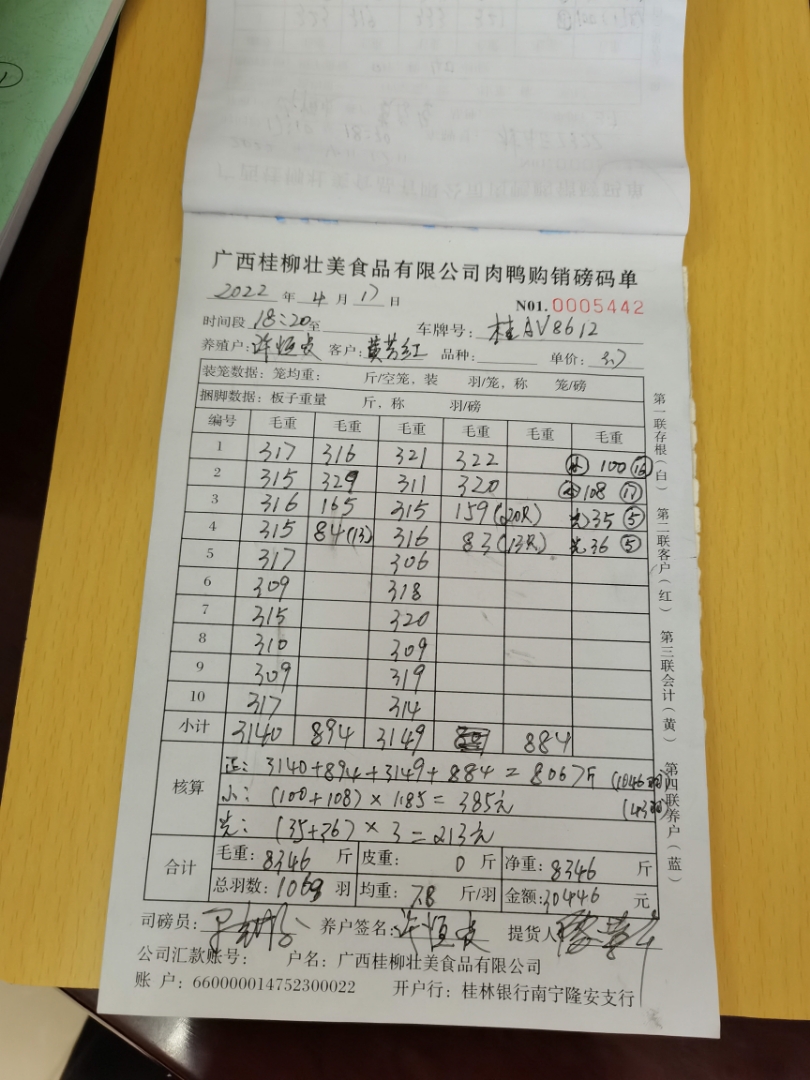 广西桂柳壮美食品有限公司肉鸭购销磅码单
2022 年 4 月 17 日 N01. 0005442
时间段 18:20 至 车牌号: 桂AV8612
养殖户: 许恒 客户: 黄芳红 品种: 单价: 3.7
装笼数据: 笼均重: 斤/空笼, 装 羽/笼, 称 笼/磅
捆脚数据: 板子重量 斤, 称 羽/磅
编号 毛重 毛重 毛重 毛重 毛重 毛重
1 317 316 321 322 小 100 16
2 315 329 311 320 小 108 17
3 316 165 315 159 (20只) 先 35 5
4 315 84 (13) 316 83 (13只) 先 36 5
5 317 306
6 309 318
7 315 320
8 310 309
9 309 319
10 317 314
小计 3140 894 3149 884
核算 正: 3140+894+3149+884=8067斤 (1046羽)
小: (100+108)×1.85=385元 (43羽)
先: (35+36)×3=213元
合计 毛重: 8346 斤 皮重: 0 斤 净重: 8346 斤
总羽数: 羽 均重: 7.8 斤/羽 金额: 30446 元
司磅员: 养户签名: 许恒 提货人
公司汇款账号: 户名: 广西桂柳壮美食品有限公司
账 户: 660000014752300022 开户行: 桂林银行南宁隆安支行
第一联存根(白) 第二联客户(红) 第三联会计(黄) 第四联养户(蓝)